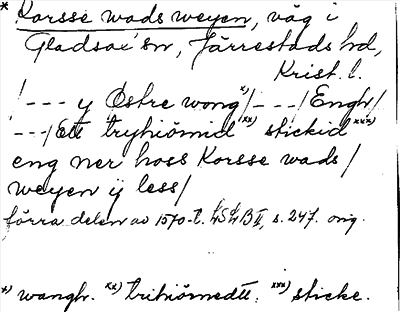 * Korsse wads weyen, väg i
Gladsax sn, Järrestads hd,
Krist. l.
/--- y Östre wong x)/---/Engh/
---/Ett tryhiömid xx) stickid xxx)
eng ner hoss Korsse wads/
weyen ÿ less/
förra delen av 1570-t. LSLB II, s. 247. orig.
x) wangh. xx) trihiömedtt. xxx) sticke.